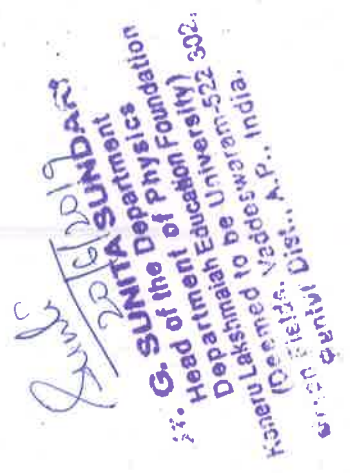 20/6/2019
G. SUNITA SUNDARI
Head of the Department
Department of Physics
Koneru Lakshmaiah Education Foundation
(Deemed to be University)
Green Fields, Vaddeswaram-522 302.
Guntur Dist., A.P., India.